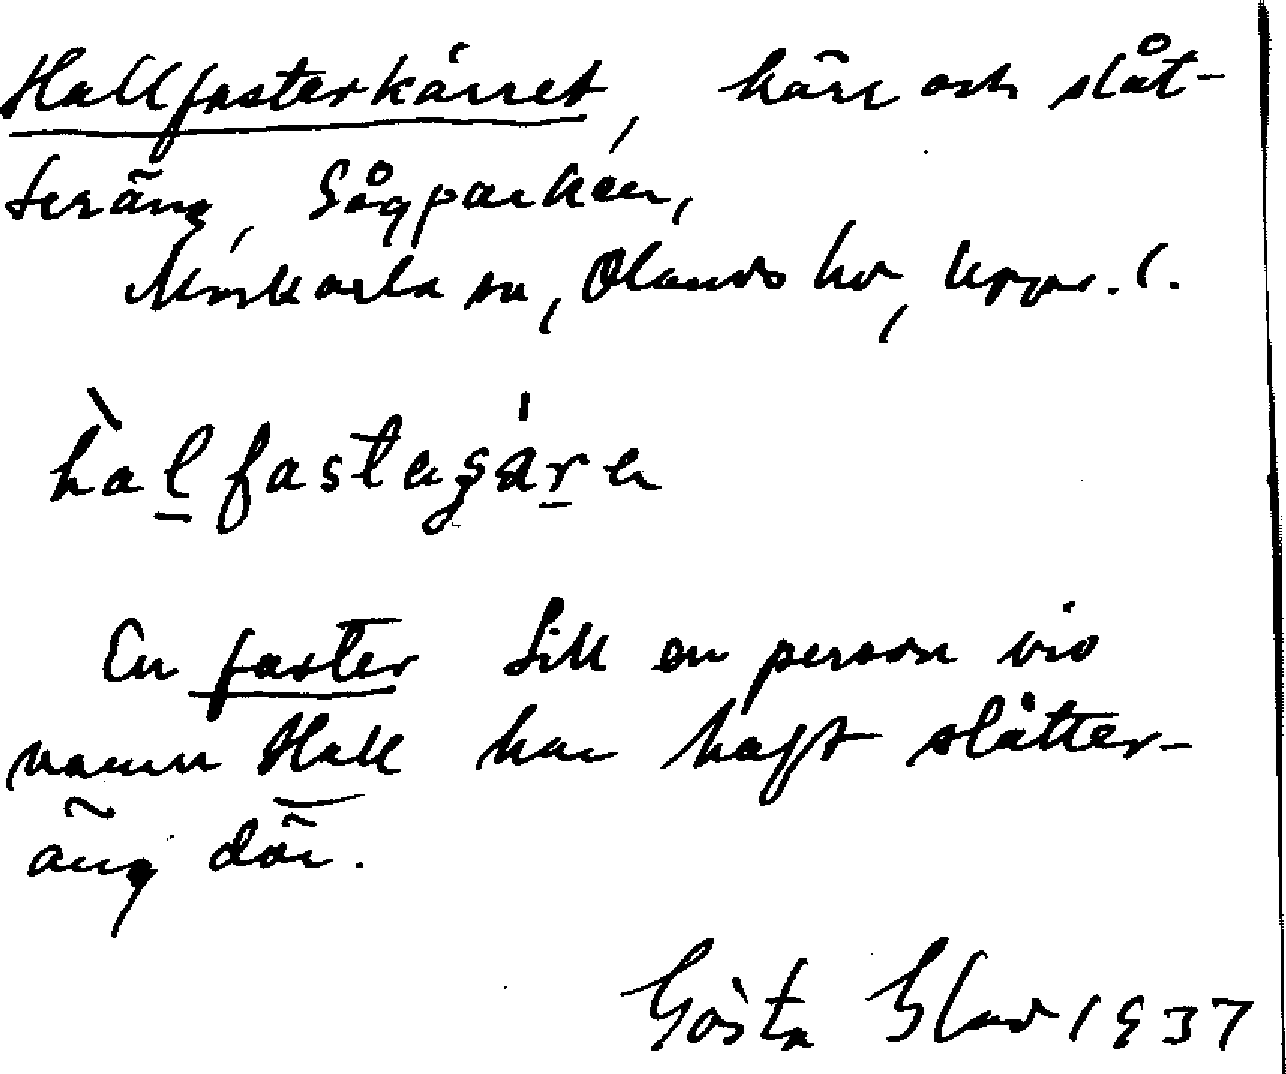 Hallfasterkärret, kärr och slåt-
teräng, Sågparken,
Morkarla sn, Olands hd, Upps. l.
En faster till en person vid
namn Hall har haft slåtter-
äng där.
Gösta Blad 1937